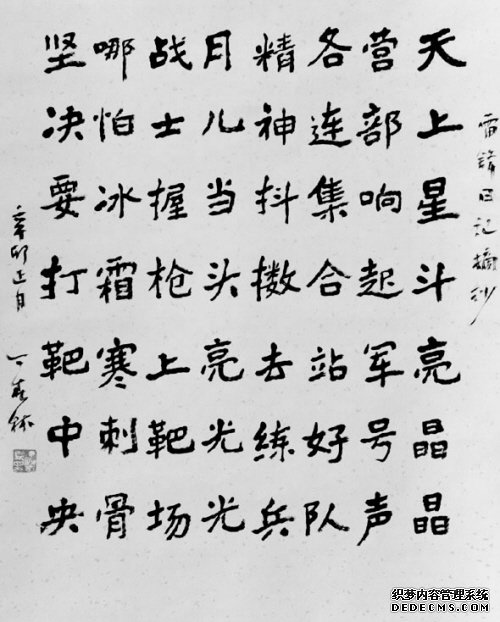 雷锋日记摘抄
天上星斗亮晶晶
营部响起军号声
各连集合站好队
精神抖擞去练兵
月儿当头亮光光
战士握枪上靶场
哪怕冰霜寒刺骨
坚决要打靶中央
辛卯正月
织梦内容管理系统
DEDECMS.COM